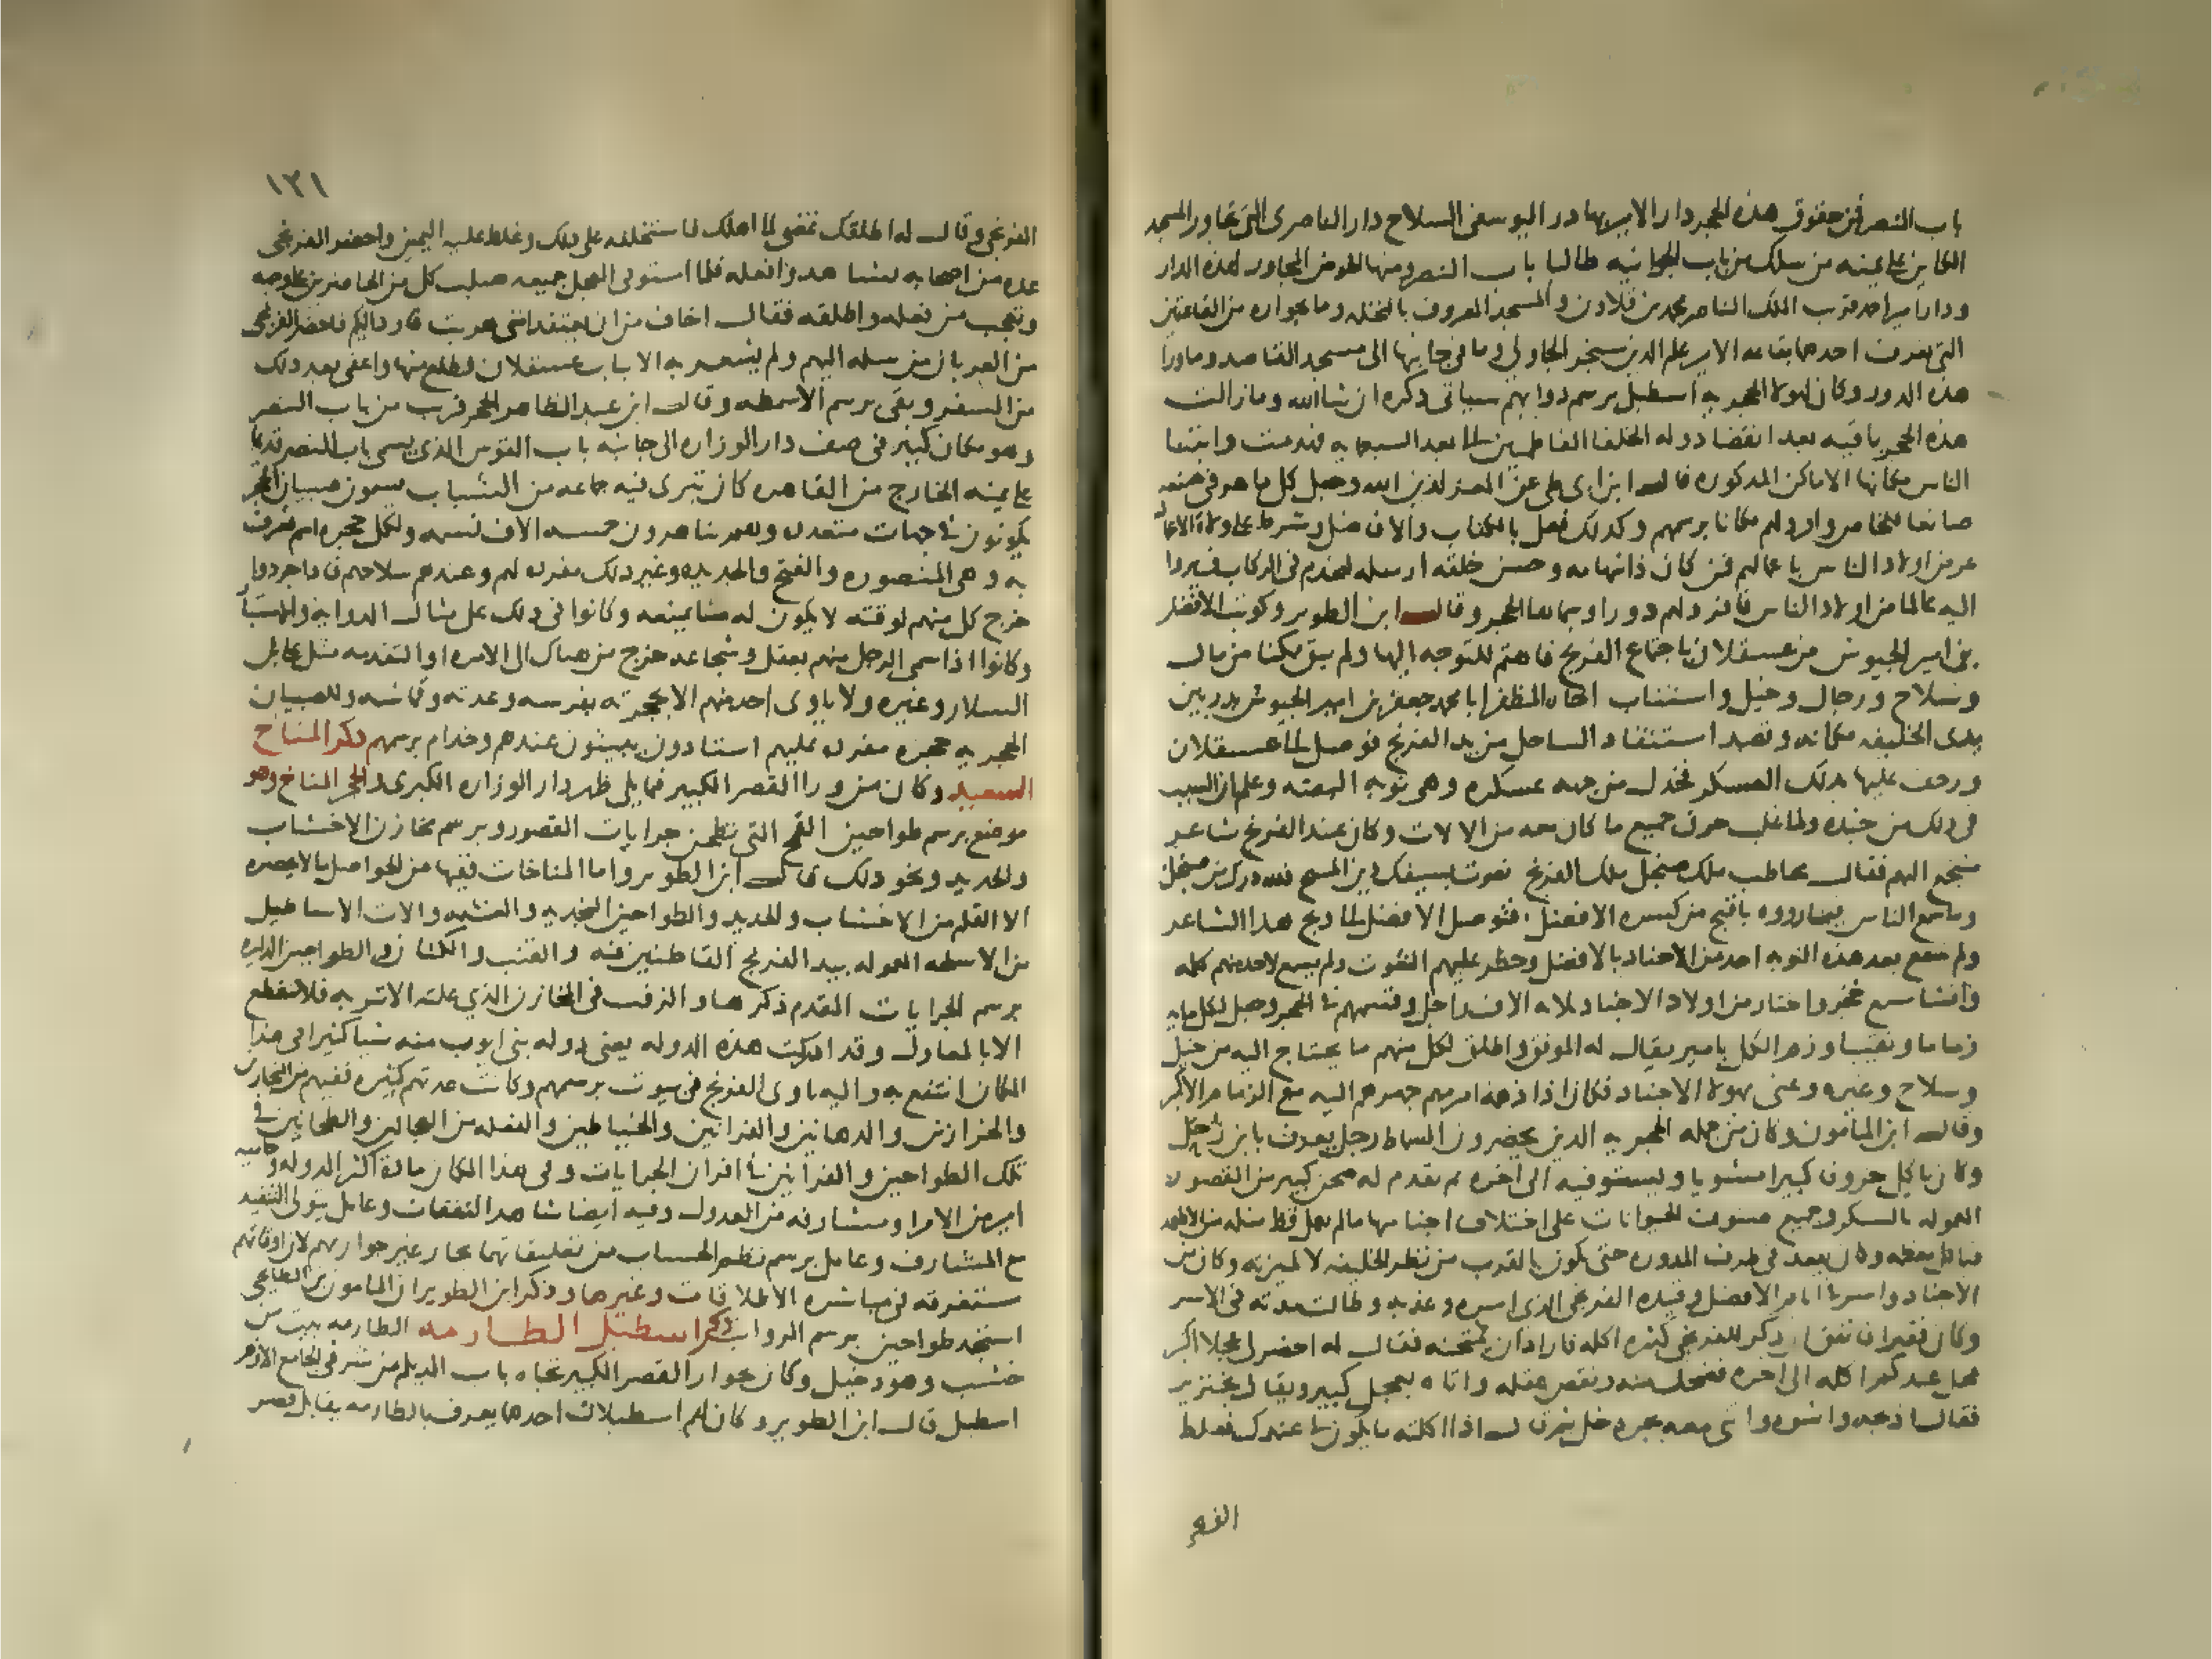 باب النصر فمن حقوق هذه الحجر دار الامير بهادر اليوسفى السلاح دار الناصرى التى تجاور المسجد
الكاين على يمنه من سلك من باب الجوانيه طالبا باب النصر ومنها الحوض المجاور لهذه الدار
ودار امير احمد قريب الملك الناصر محمد بن قلاون والمسجد المعروف بالنخله وما بجواره من القاعتين
التى تعرف احدهما بقاعه الامير علم الدين سنجر الجاولى وما فى جانبها الى مسجد القاصد وما ورا
هذه الدور وكان لهولا الحجريه اسطبل برسم دوابهم سياتى ذكره ان شاالله وما زالت
هذه الحجر باقيه بعد انقضا دوله الخلفا الفاطميين الى ما بعد السبعمايه فهدمت وابتنا
الناس مكانها الاماكن المذكوره قال ابن ابى طى عن المعز لدين الله وجعل كل ماهر فى صنعه
صانعا للخاص وافرد لهم مكانا برسمهم وكذلك فعل بالكتاب والافاضل وشرط على ولاة الاعمال
عرض اولاد الناس باعمالهم فمن كان ذا شهامه وحسن خلقه ارسله ليخدم فى الركاب فسيروا
اليه عالما من اولاد الناس فافرد لهم دورا وسماها الحجر وقال ابن الطوير وكوتب الافضل
بن امير الجيوش من عسقلان باجتماع الفرنج فاهتم للتوجه اليها ولم يبق ممكنا من مال
وسلاح ورجال وخيل واستناب اخاه المظفر ابا محمد جعفر بن امير الجيوش بدر بين
يدى الخليفه مكانه وقصد استنقاد الساحل من يد الفرنج فوصل الى عسقلان
وزحف عليها بذلك العسكر فخذل من جهه عسكره وهى نوبه النصه وعلم ان السبب
فى ذلك من جنده ولما غلب حرق جميع ما كان معه من الالات وكان عند الفرنج شاعر
منتجع اليهم فقال يخاطب ملك صنجل ملك الفرنج نصرت بسيفك دين المسيح فلله درك من صنجل
وما سمع الناس فيما رووه باقبح من كسره الافضل فتوصل الافضل الى ذبح هذا الشاعر
ولم ينتفع بعد هذه النوبه احد من الاجناد بالافضل وحظر عليهم النعوت ولم يسمع لاحد منهم كلمه
وانشا سبع حجر واختار من اولاد الاجناد ثلاثه الاف راجل وقسمهم فى الحجر وجعل لكل مايه
زماما ونقيبا وزم الكل بامير يقال له الموفق واطلق لكل منهم ما يحتاج اليه من خيل
وسلاح وغيره وعنى بهولا الاجناد فكان اذا دهمه امر مهم جهزهم اليه مع الزمام الاكبر
وقال ابن المامون وكان من جمله الحجريه الذين يحضرون السماط رجل يعرف بابن زحل
وكان ياكل خروف كبيرا مشويا ويستوفيه الى اخره ثم يقدم له صحن كبير من القصور
المعموله بالسكر وجميع صنوف الحيوانات على اختلاف اجناسها ما لم يعمل قط مثله من الاطعمه
فياكل معظمه وكان يقعد فى طرف المدوره حتى يكون بالقرب من نظر الخليفه لا لميزته وكان من
الاجناد واسر فى ايام الافضل وقيده الفرنجى الذى اسره وعذبه وطالت مدته فى الاسر
وكان فقيرا فاتفق ان ذكر للفرنجى كثره اكله فاراد ان يمتحنه فقال له احضر لى عجلا اكبر
عجل عندكم اكله الى اخره فضحك منه ونقص عقله واتاه بعجل كبير ويقال بخنزير
فقال اذبحه واشوه واتنى معه بجره خل ثم قال اذا اكلته ما يكون لى عندك فغلط
الفرنجى
١٣١
الفرنجى وقال له اطلقك تمضى الى اهلك فاستحلفه على ذلك وغلظ عليه اليمين واحضر الفرنجى
عده من اصحابه ليشاهدوا فعله فلما استوفى العجل جميعه صلب كل من الحاضرين على وجهه
وتعجب من فعله واطلقه فقال اخاف من ان يعتقد اننى هربت فارد اليكم فاحضر الفرنجى
من العربان من سلمه اليهم ولم يشعر به الا بباب عسقلان فطلع منها واعفى بعد ذلك
من السفر وبقى برسم الاسمطه وقال ابن عبد الظاهر الحجر قريب من باب النصر
وهو مكان كبير فى صف دار الوزاره الى جانبه باب القوس الذى يسمى باب النصر قديما
على يمنه الخارج من القاهره كان تربى فيه جماعه من الشباب يسمون صبيان الحجر
يكونون فى جهات متعدده وهم يناهزون خمسه الاف نسمه ولكل حجره اسم تعرف
به وهى المنصوره والفتح والجديده وغير ذلك مفرده لهم وعندهم سلاحهم فاذا جردوا
خرج كل منهم لوقته لا يكون له ما يمنعه وكانوا فى ذلك على مثال الدوابه والاستبار
وكانوا اذا سمى الرجل منهم بعقل وشجاعه خرج من هناك الى الامره او التقدمه مثل على بن
السلار وغيره ولا ياوى احد منهم الا بحجرته بفرسه وعدته وقماشه وللصبيان
الحجريه حجره مفرده عليهم استادون يبيتون عندهم وخدام برسمهم ذكر المناخ
السعيد وكان من ورا القصر الكبير فيما يلى ظهر دار الوزاره الكبرى والحجر المناخ وهو
موضع برسم طواحين القمح التى تطحن جرايات القصور وبرسم مخازن الاخشاب
والحديد ونحو ذلك قال ابن الطوير واما المناخات ففيها من الحواصل ما لا يحصره
الا القلم من الاخشاب والحديد والطواحين النجديه والغشيمه والات الاساطيل
من الاسلحه المعموله بيد الفرنج القاطنين فيه والقنب والكتان والطواحين الدايره
برسم الجرايات المقدم ذكرها والزفت فى المخازن الذى عليه الاتربه فلا ينقطع
الا بالمعاول وقد ادركت هذه الدوله يعنى دوله بنى ايوب منه شيا كثيرا فى هذا
المكان انتفع به واليه ياوى الفرنج فى بيوت برسمهم وكانت عدتهم كثيره ففيهم من النجارين
والخرازين والدهانين والفرانين والخياطين والفعله من العجانين والطحانين فى
تلك الطواحين والفرانين فى افران الجرايات وفى هذا المكان مادة اكثر الدوله وحاميه
امير من الامرا ومشارفه من العدول وفيه ايضا شاهد النفقات وعامل يتولى التنفيذ
مع المشارف وعامل برسم نظم الحساب من تعليقاتها بجار غير جواريهم لان اوقاتهم
مستغرقه فى مباشره الاطلاقات وغيرها وذكر ابن الطوير ان المامون بن البطايحى
استجد طواحين برسم الرواتب ذكر اسطبل الطارمه الطارمه بيت من
خشب وهو دخيل وكان بجوار القصر الكبير تجاه باب الديلم من شرقى الجامع الازهر
اسطبل قال ابن الطوير وكان لهم اسطبلان احدهما يعرف بالطارمه يقابل قصر